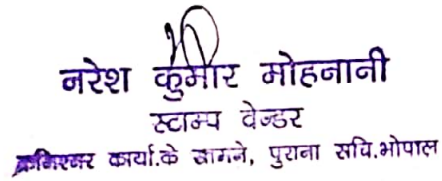 नरेश कुमार मोहनानी
स्टाम्प वेन्डर
कमिश्नर कार्या.के सामने, पुराना सचि.भोपाल